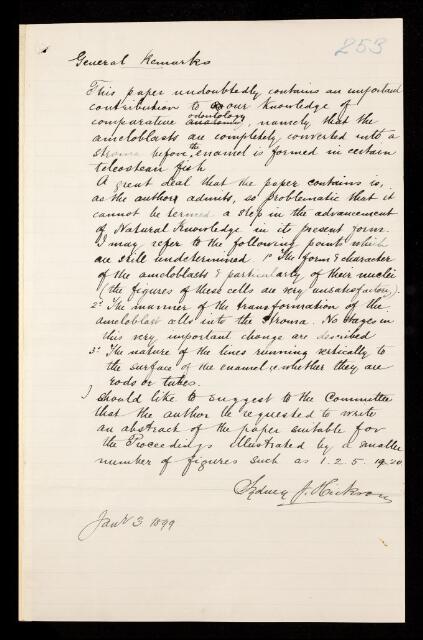 253
General Remarks
This paper undoubtedly contains an important
contribution to our knowledge of
comparative odontology anatomy, namely that the
ameloblasts are completely converted into a
stroma before the enamel is formed in certain
teleostean fish
A great deal that the paper contains is,
as the author admits, so problematic that it
cannot be termed a step in the advancement
of Natural Knowledge in its present form.
I may refer to the following points which
are still undetermined. 1° The form & character
of the ameloblasts & particularly of their nuclei
(the figures of these cells are very unsatisfactory).
2° The manner of the transformation of the
ameloblast cells into the stroma. No stages in
this very important change are described
3° The nature of the lines running vertically to
the surface of the enamel i.e. whether they are
rods or tubes.
I should like to suggest to the Committee
that the author be requested to write
an abstract of the paper suitable for
the Proceedings illustrated by a smaller
number of figures such as 1. 2. 5. 19. 20
Sydney J. Hickson
Jany 3. 1899